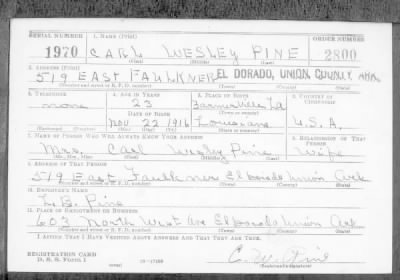 SERIAL NUMBER 1. NAME (Print) ORDER NUMBER
1970 CARL WESLEY PINE 2800
(First) (Middle) (Last)
2. ADDRESS (Print)
519 EAST FAULKNER EL DORADO, UNION COUNTY, ARK.
(Number and street or R. F. D. number) (Town) (County) (State)
3. TELEPHONE 4. AGE IN YEARS 5. PLACE OF BIRTH 6. COUNTRY OF CITIZENSHIP
none 23 Farmerville, La
DATE OF BIRTH (Town or county)
Nov 22 1916 Louisiana U.S.A.
(Exchange) (Number) (Mo.) (Day) (Yr.) (State or country)
7. NAME OF PERSON WHO WILL ALWAYS KNOW YOUR ADDRESS 8. RELATIONSHIP OF THAT PERSON
Mrs. Carl Wesley Pine Wife
(Mr., Mrs., Miss) (First) (Middle) (Last)
9. ADDRESS OF THAT PERSON
519 East Faulkner El Dorado Union Ark
(Number and street or R. F. D. number) (Town) (County) (State)
10. EMPLOYER'S NAME
L. B. Pine
11. PLACE OF EMPLOYMENT OR BUSINESS
603 North West Ave El Dorado Union Ark
(Number and street or R. F. D. number) (Town) (County) (State)
I AFFIRM THAT I HAVE VERIFIED ABOVE ANSWERS AND THAT THEY ARE TRUE.
REGISTRATION CARD
D. S. S. Form 1 (over) 16—17105 C. W. Pine
(Registrant's signature)